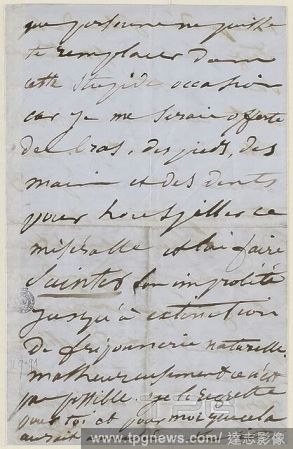 que personne ne puisse
te remplacer dans
cette stupide occasion
car je me serais offerte
des bras, des pieds, des
mains et des dents
pour houspiller ce
misérable et lui faire
son improbité
jusqu'à extinction
de friponnerie naturelle.
malheureusement ce n'est
pas possible. je le regrette
pour toi et pour moi que cela
aurait
www.tpgnews.com 達志影像